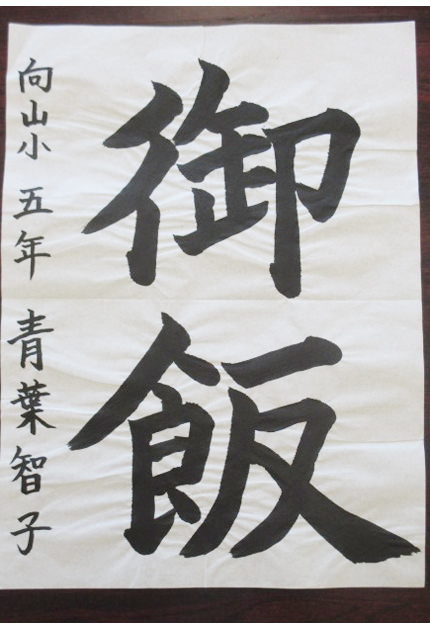 御飯
向山小 五年 青葉智子